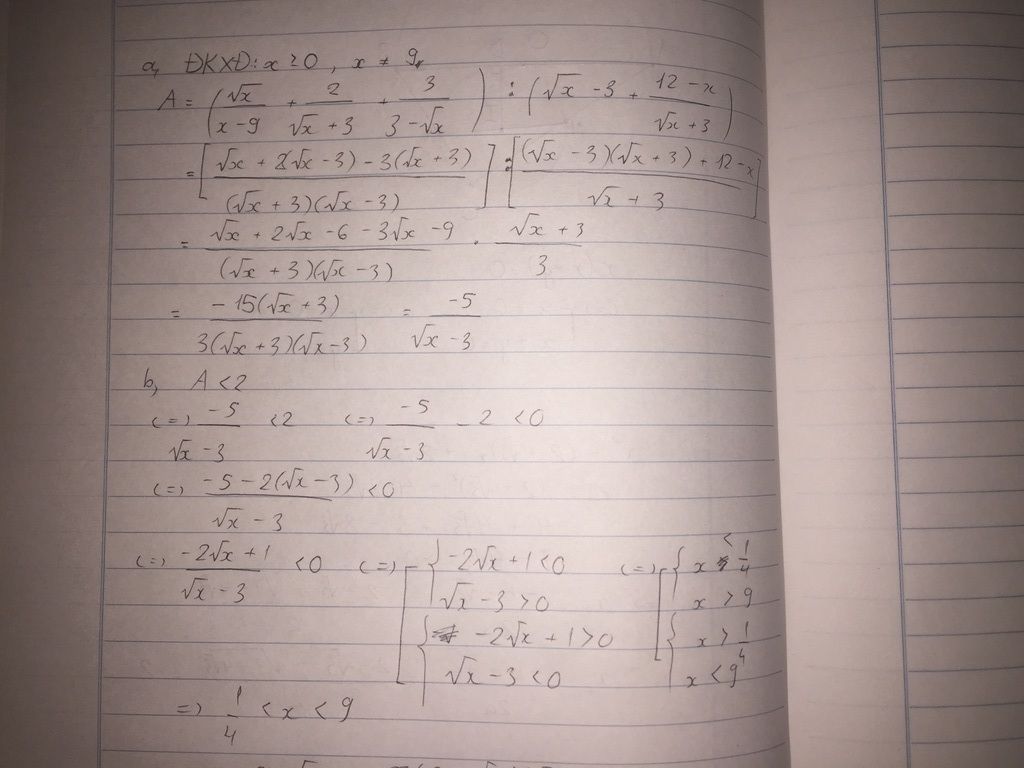 a, ĐKXĐ: x ≥ 0, x ≠ 9
A = (√x/(x-9) + 2/(√x+3) + 3/(3-√x)) : (√x - 3 + (12-x)/(√x+3))
= [(√x + 2(√x-3) - 3(√x+3))/((√x+3)(√x-3))] : [((√x-3)(√x+3) + 12-x)/(√x+3)]
= (√x + 2√x - 6 - 3√x - 9)/((√x+3)(√x-3)) . (√x+3)/3
= -15(√x+3)/(3(√x+3)(√x-3)) = -5/(√x-3)
b, A < 2
(=) -5/(√x-3) < 2 (=) -5/(√x-3) - 2 < 0
(=) (-5 - 2(√x-3))/(√x-3) < 0
(=) (-2√x + 1)/(√x-3) < 0 (=) [ { -2√x + 1 < 0 (=) [ { x < 1/4
√x - 3 > 0 x > 9
{ -2√x + 1 > 0 { x > 1/4
√x - 3 < 0 x < 9
=) 1/4 < x < 9